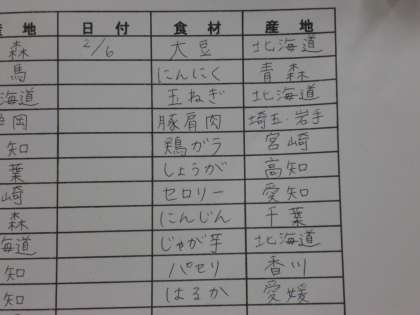 産 地 日 付 食 材 産 地
森 2/6 大豆 北海道
馬 にんにく 青森
海道 玉ねぎ 北海道
岡 豚肩肉 埼玉・岩手
知 鶏ガラ 宮崎
葉 しょうが 高知
崎 セロリー 愛知
森 にんじん 千葉
海道 じゃが芋 北海道
知 パセリ 香川
知 はるか 愛媛